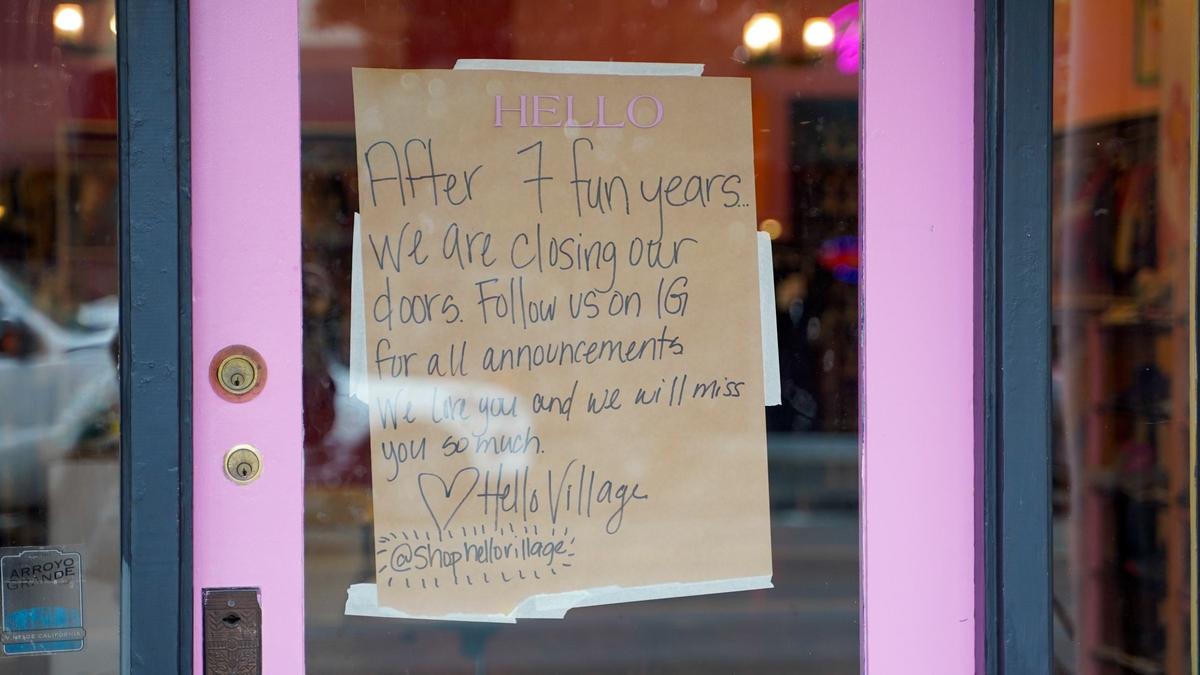 HELLO
After 7 fun years...
We are closing our
doors. Follow us on IG
for all announcements
We love you and we will miss
you so much.
♡ Hello Village
@Shophellovillage
ARROYO
GRANDE
CALIFORNIA